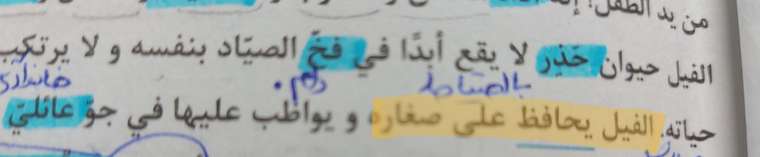 من يد الطفل! إنه
الفيل حيوان حَذِر لا يقع أبدًا في فخّ الصيّاد بنفسه و لا يرتكب
بااحتیاط دام خانوادگی
حياته. الفيل يحافظ على صغاره و يواظب عليها في جوّ عائليّ